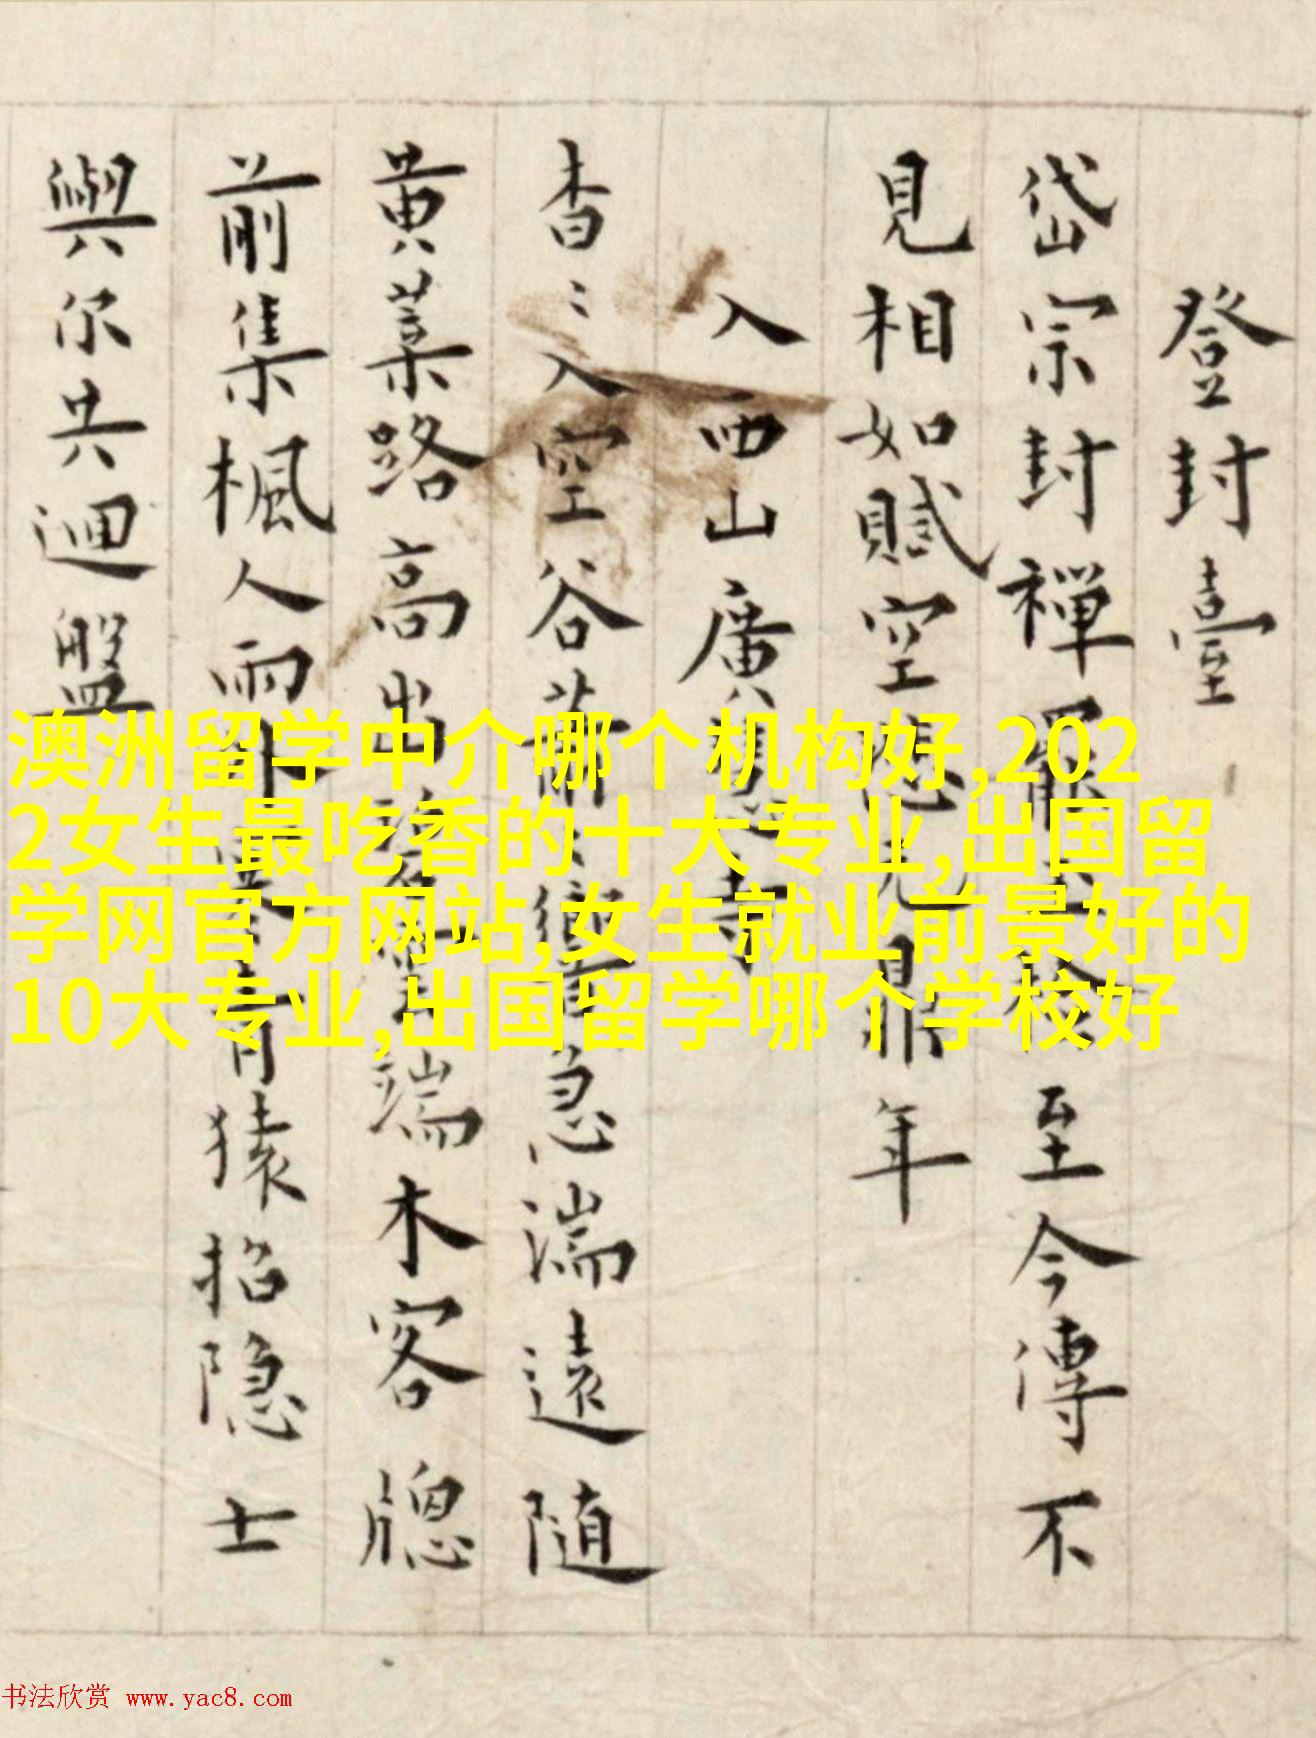 登封臺
岱宗封禪至今傳不
見相如賦空元鼎年
入西山廣寺
杳〻入空谷蕭〻急湍遠隨
黄葉路高出端木客牕
前集楓人雨猿招隐士
與尔共迴盤
澳洲留学中介哪个机构好,202
2女生最吃香的十大专业,出国留
学网官方网站,女生就业前景好的
10大专业,出国留学哪个学校好
书法欣赏 www.yac8.com